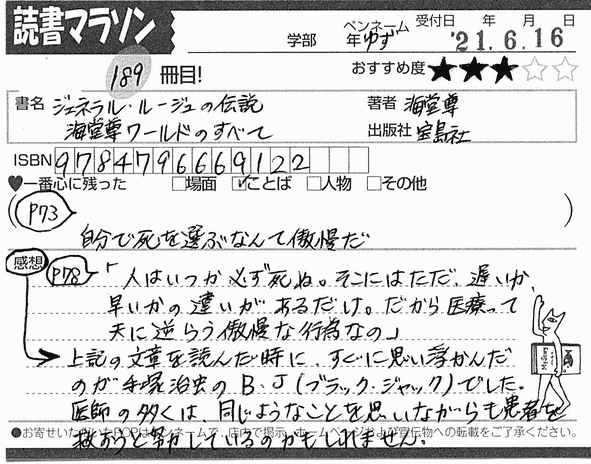 読書マラソン
学部 年 ペンネーム ゆず 受付日 年 月 日
'21.6.16
189冊目! おすすめ度★★★☆☆
書名 ジェネラル・ルージュの伝説 著者 海堂尊
海堂尊ワールドのすべて 出版社 宝島社
ISBN 9784796669122
♥一番心に残った □場面 ☑ことば □人物 □その他
(P73
自分で死を選ぶなんて傲慢だ )
感想 P78 「人はいつか必ず死ぬ。そこにはただ、遅いか、
早いかの違いがあるだけ。だから医療って
天に逆らう傲慢な行為なの」
→上記の文章を読んだ時に、すぐに思い浮かんだ
のが手塚治虫のB・J(ブラック・ジャック)でした。
医師の多くは、同じようなことを思いながらも患者を
救おうと努力しているのかもしれません。
●お寄せいただいたPOPはペンネームで、店内で掲示、ホームページおよび宣伝物への転載をご了承ください。